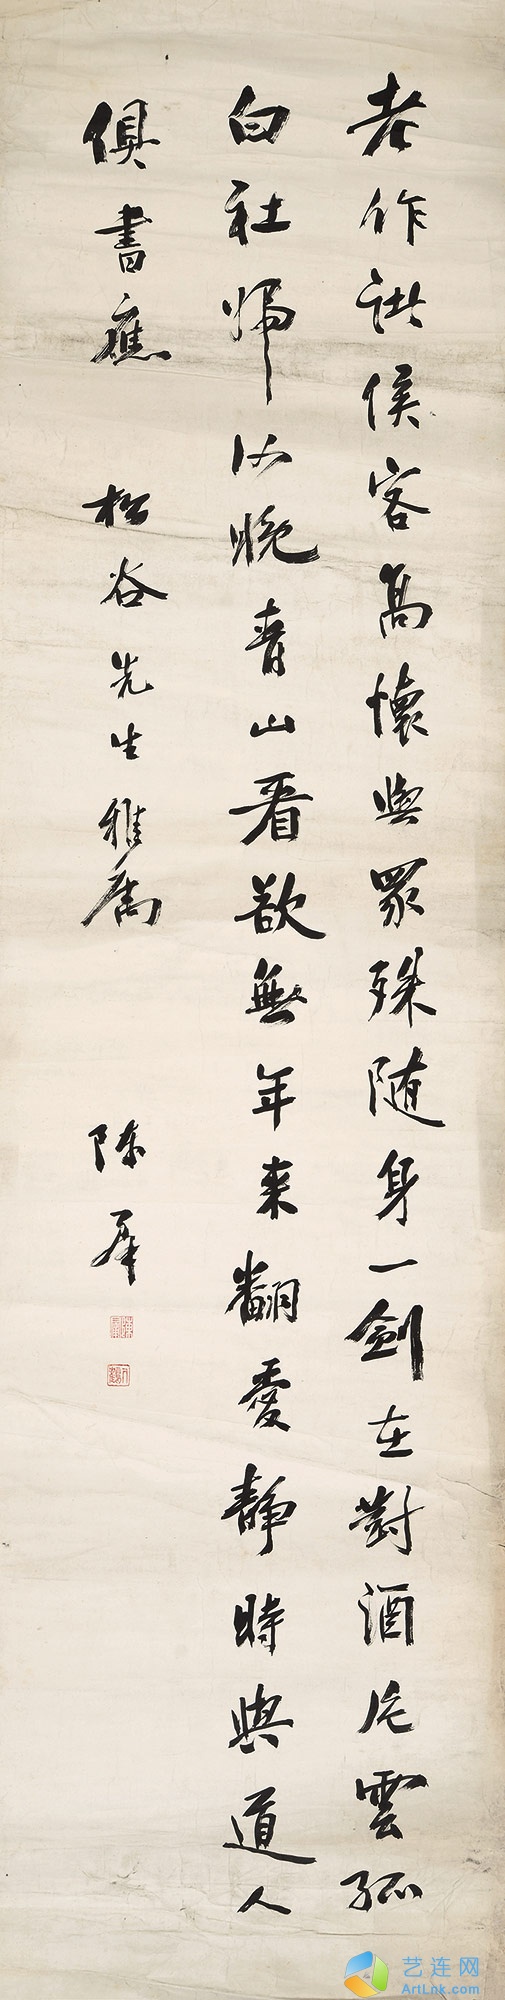 老作諸侯客高懷與眾殊随身一劍在對酒片雲孤
白社歸何晚青山看欲無年来翻愛靜時與道人
俱書應 松谷先生雅屬 陳羣
艺连网
ArtLnk.com